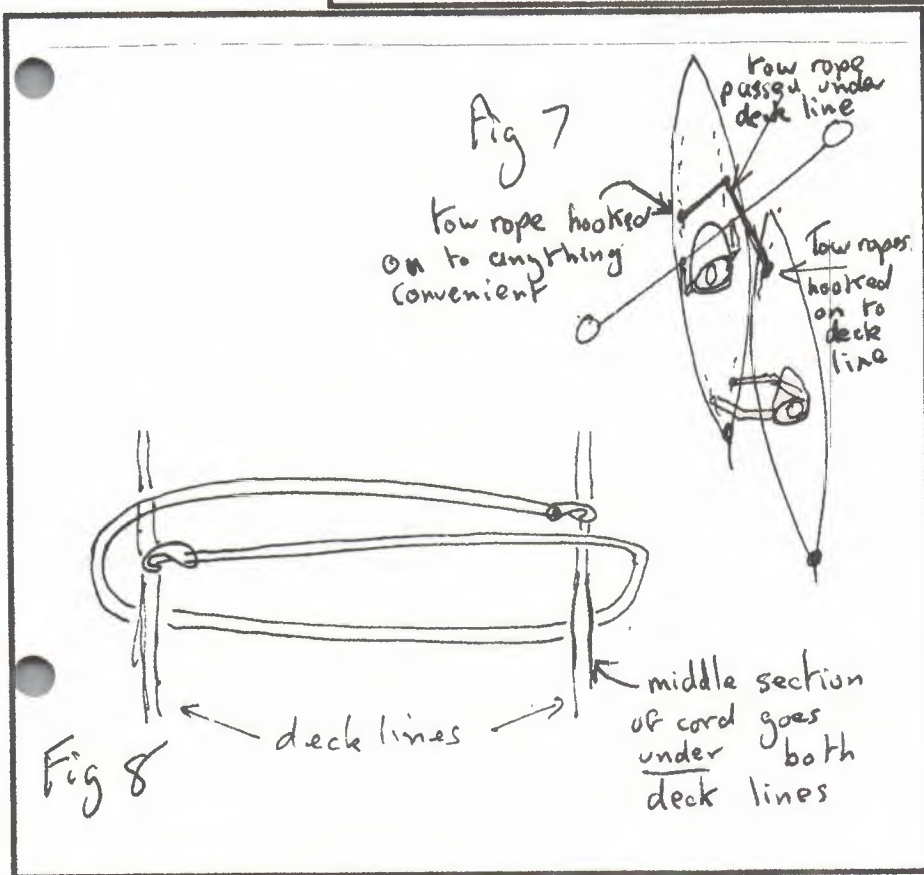 Fig 7
tow rope
passed under
deck line
tow rope hooked
on to anything
convenient
Tow ropes
hooked
on to
deck
line
deck lines
middle section
of cord goes
under both
deck lines
Fig 8